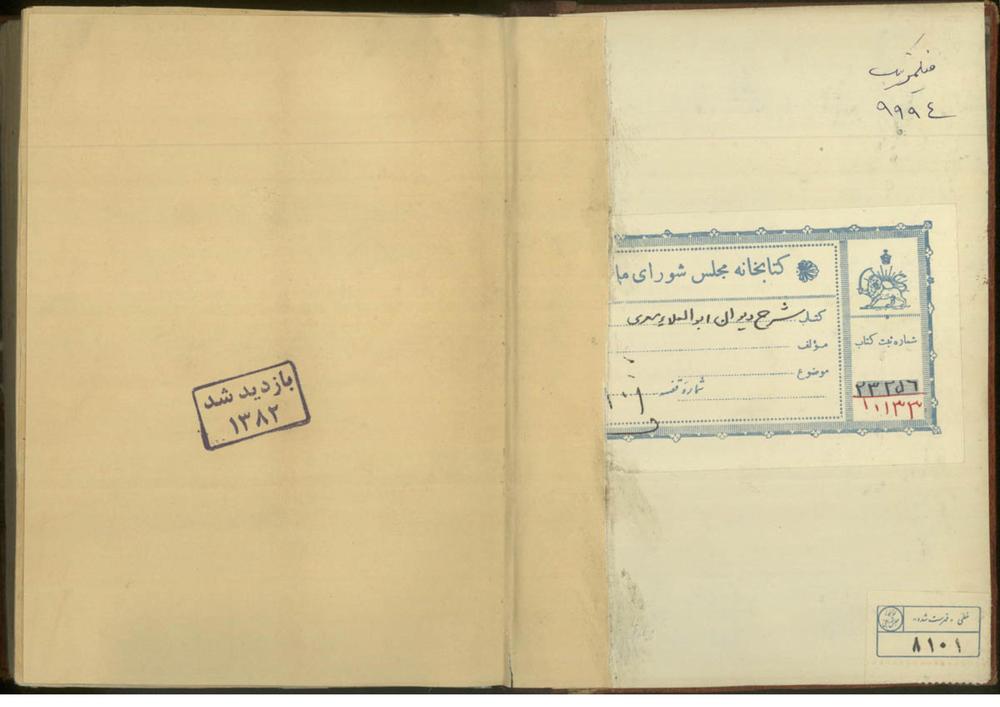 ۹۹۹٤
کتابخانه مجلس شورای
کتاب شرح دیوان ابوالعلاء معری
مؤلف
موضوع
شماره قفسه
شماره ثبت کتاب
۲۳۲۵۶
۱۰۱۳۳
بازدید شد
۱۳۸۲
خطی - فهرست شده
۸۱۰۱